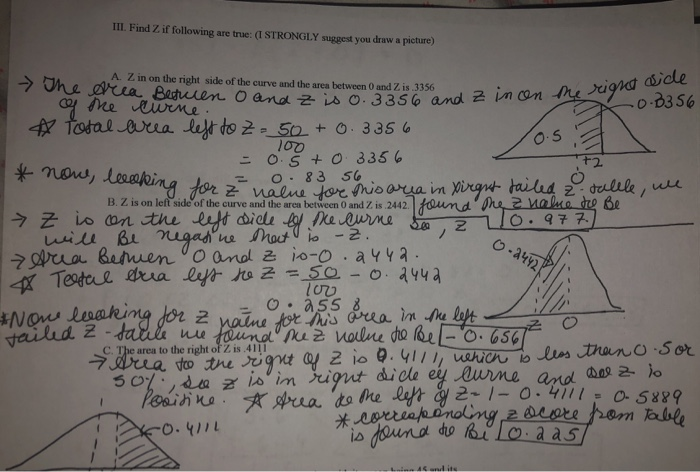 III. Find Z if following are true: (I STRONGLY suggest you draw a picture)
A. Z in on the right side of the curve and the area between 0 and Z is .3356
→ The Area Between 0 and z is 0.3356 and z in on the right side
of the curve.
0.3356
* Total area left to z = 50/100 + 0.3356
0.5
= 0.5 + 0.3356
+z
0
= 0.8356
* now, looking for z value for this area in right tailed z-table, we
B. Z is on left side of the curve and the area between 0 and Z is .2442
found the z value to Be
0.977
→ z is on the left side of the curve so, z
will Be negative that is -z.
→ Area Between 0 and z is -0.2442.
0.2442
* Total Area left to z = 50/100 - 0.2442
= 0.2558
-z 0
* Now looking for z value for this area in the left
tailed z-table we found the z value to Be -0.656
C. The area to the right of Z is .4111
→ Area to the right of z is 0.4111, which is less than 0.5 or
50%, so z is in right side of curve and so z is
Positive. * Area to the left of z = 1 - 0.4111 = 0.5889
* corresponding z score from table
is found to Be 0.225
0.4111